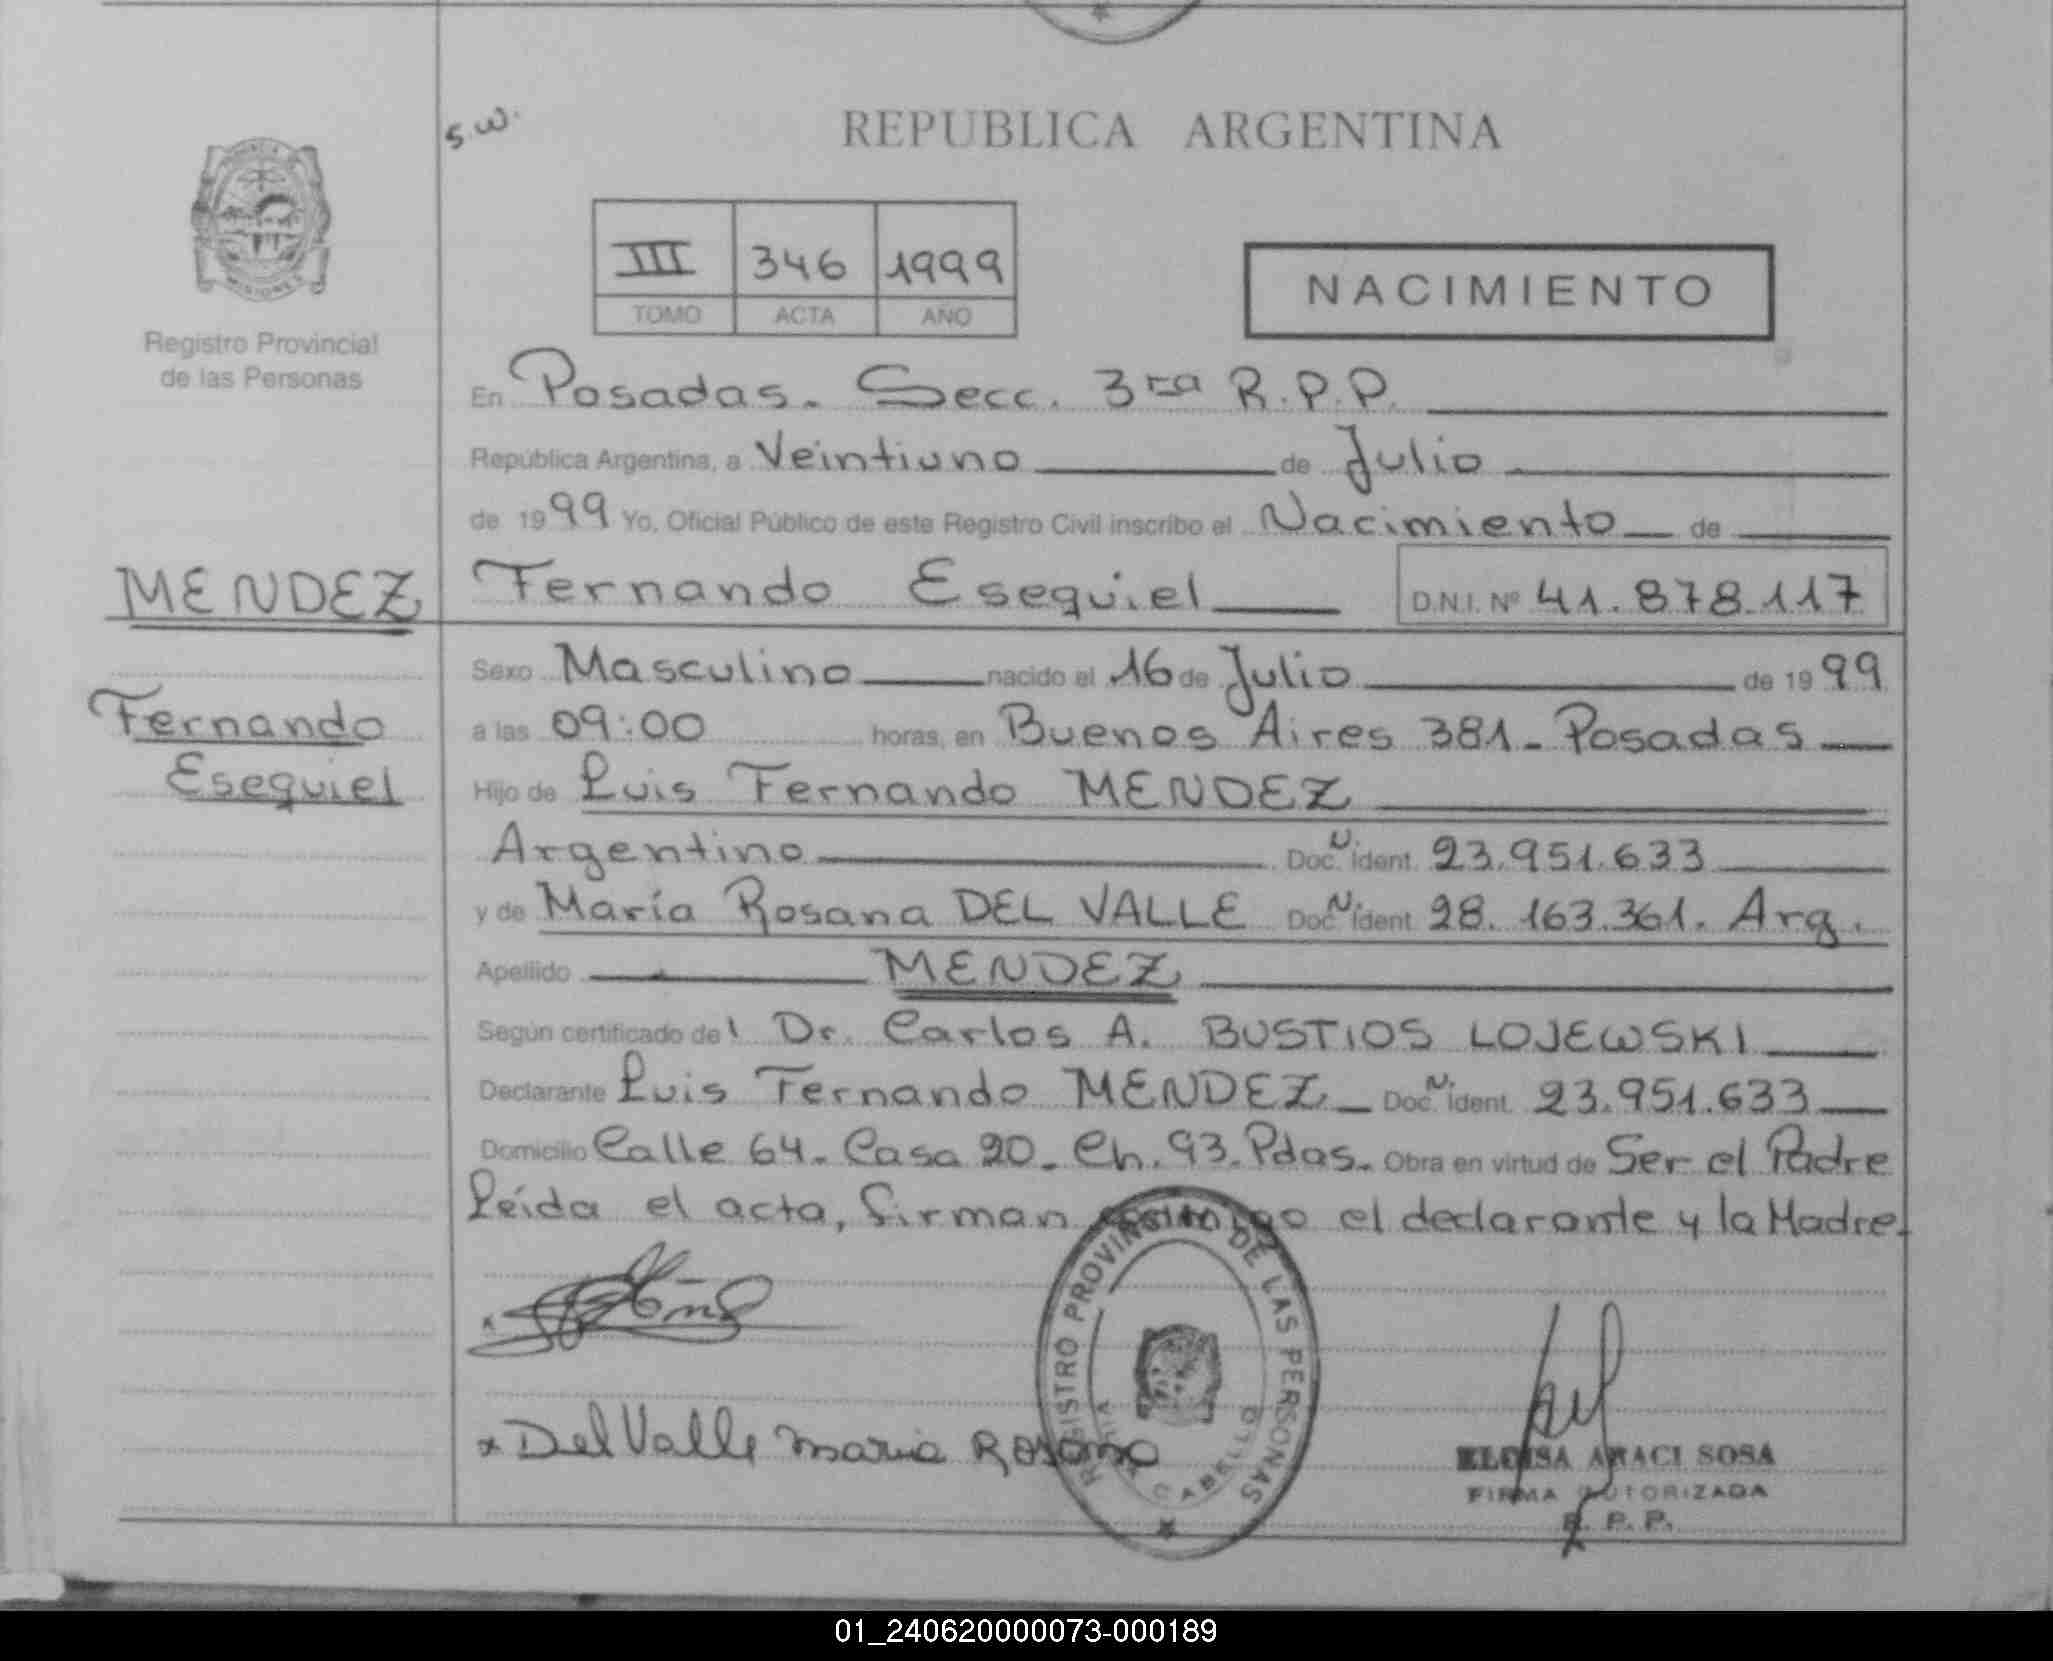 S.W.
REPUBLICA ARGENTINA
PROVINCIA
MISIONES
Registro Provincial
de las Personas
III 346 1999
TOMO ACTA AÑO
NACIMIENTO
En Posadas. Secc. 3ra R.P.P.
República Argentina, a Veintiuno de Julio
de 1999 Yo, Oficial Público de este Registro Civil inscribo el Nacimiento de
MENDEZ Fernando Esequiel D.N.I. Nº 41.878.117
Sexo Masculino nacido el 16 de Julio de 1999
Fernando
Esequiel
a las 09:00 horas, en Buenos Aires 381 - Posadas
Hijo de Luis Fernando MENDEZ
Argentino Doc. N. Ident. 23.951.633
y de María Rosana DEL VALLE Doc. N. Ident 28.163.361. Arg.
Apellido MENDEZ
Según certificado del Dr. Carlos A. BUSTIOS LOJEWSKI
Declarante Luis Fernando MENDEZ Doc. N. Ident. 23.951.633
Domicilio Calle 64 - Casa 20 - Ch. 93. Pdas. Obra en virtud de Ser el Padre
Leída el acta, firman conmigo el declarante y la Madre.
REGISTRO PROVINCIAL DE LAS PERSONAS
CABELLO
x Del Valle Maria Rosana
ELOISA ARACI SOSA
FIRMA AUTORIZADA
R. P. P.
01_240620000073-000189